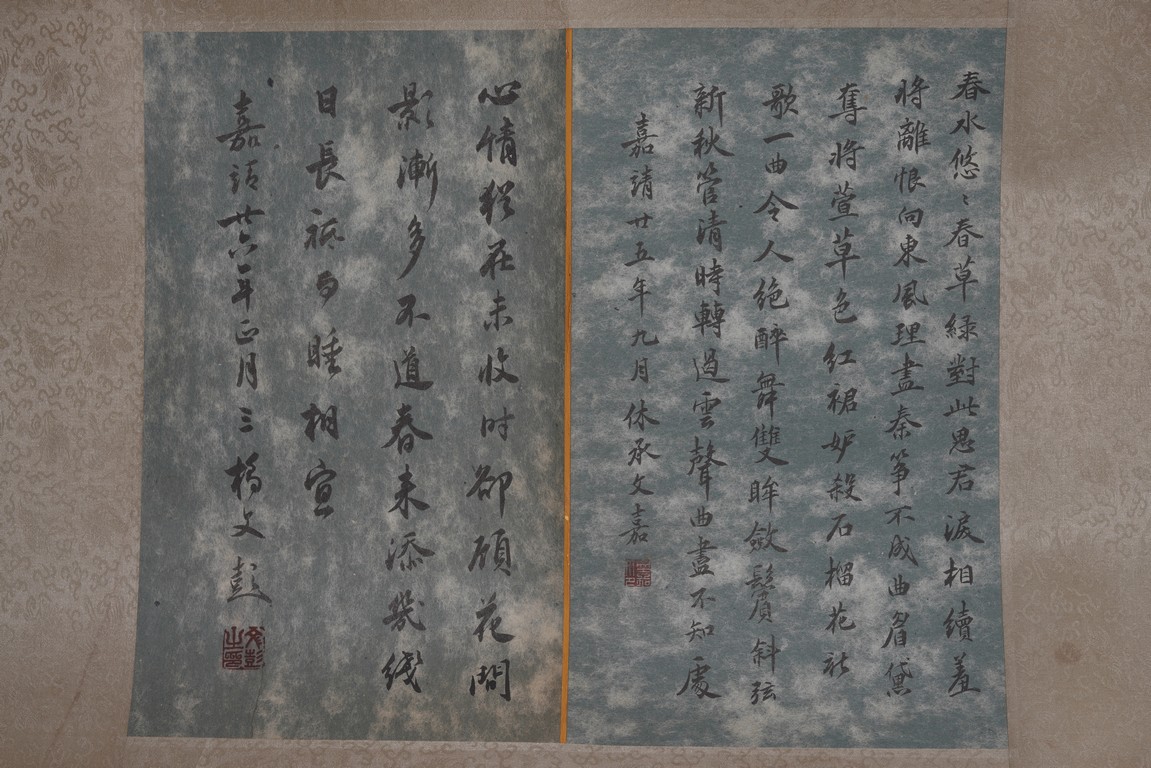 春水悠〻春草綠對此思君淚相續羞
將離恨向東風理盡秦箏不成曲眉黛
奪將萱草色紅裙妒殺石榴花新
歌一曲令人絕醉舞雙眸斂鬢斜弦
新秋管清時轉過雲聲曲盡不知處
嘉靖廿五年九月休承文嘉
心情猶在未收时卻顧花間
影漸多不道春来添幾線
日長祇与睡相宜
嘉靖廿六年正月三橋文彭
文彭之印